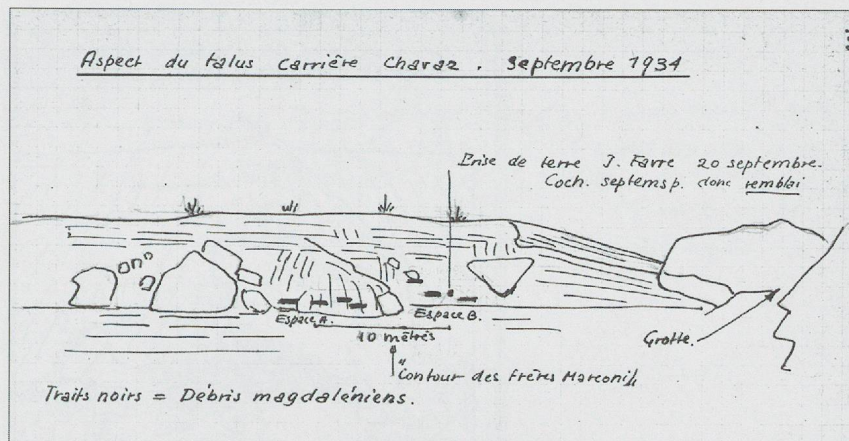 Aspect du talus Carrière Chavaz. Septembre 1934
Prise de terre J. Favre 20 septembre.
Coch. septemsp. donc remblai
Espace A.
Espace B.
10 mètres
Grotte.
"Contour des frères Marconi"
Traits noirs = Débris magdaléniens.